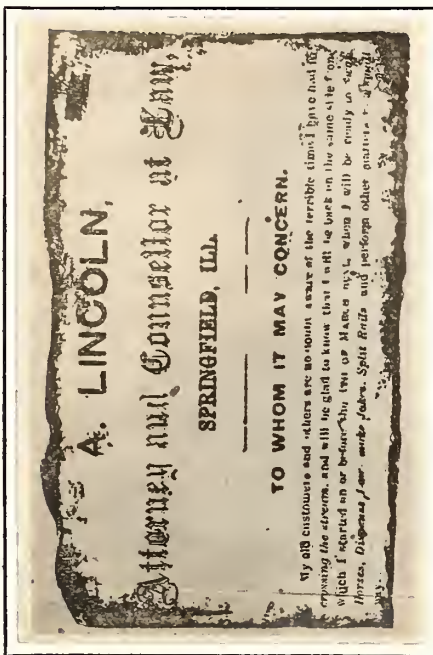 A. LINCOLN,
Attorney and Counsellor at Law,
SPRINGFIELD, ILL.
TO WHOM IT MAY CONCERN.
My old customers and others are no doubt aware of the terrible time I have had in
crossing the stream, and will be glad to know that I will be back on the same site from
which I started on or before the 4th of March next, when I will be ready to Swap
Horses, Dispense Law, make Jokes, Split Rails and perform other matters in a